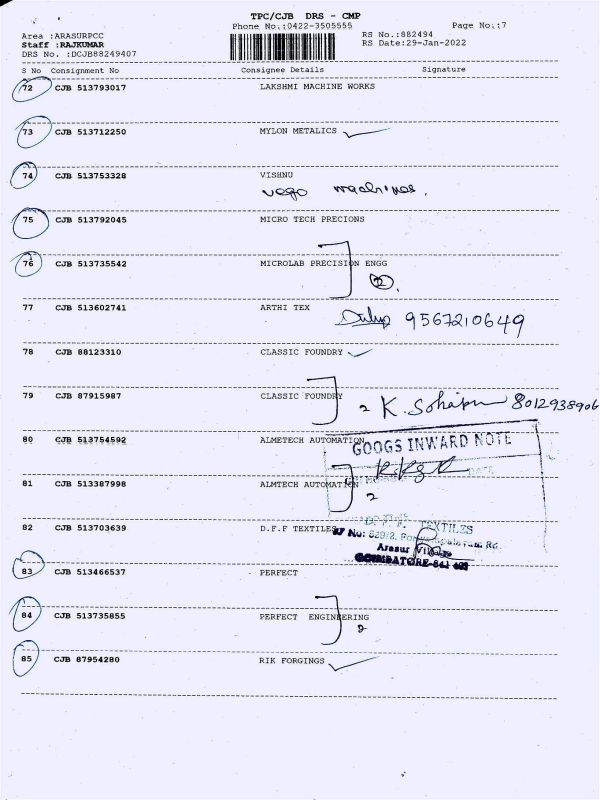 TPC/CJB DRS - CMP
Phone No.:0422-3505555 Page No.:7
Area :ARASURPCC RS No.:882494
Staff :RAJKUMAR RS Date:29-Jan-2022
DRS No. :DCJB88249407
S No Consignment No Consignee Details Signature
72 CJB 513793017 LAKSHMI MACHINE WORKS
73 CJB 513712250 MYLON METALICS
74 CJB 513753328 VISHNU
vego machines.
75 CJB 513792045 MICRO TECH PRECIONS
76 CJB 513735542 MICROLAB PRECISION ENGG
2
77 CJB 513602741 ARTHI TEX
9567210649
78 CJB 88123310 CLASSIC FOUNDRY
79 CJB 87915987 CLASSIC FOUNDRY
2 K. 8012938906
80 CJB 513754592 ALMETECH AUTOMATION
GOOGS INWARD NOTE
81 CJB 513387998 ALMTECH AUTOMATION
2
TEXTILES
82 CJB 513703639 D.F.F TEXTILES
Arasur Village
COIMBATORE-641
83 CJB 513466537 PERFECT
84 CJB 513735855 PERFECT ENGINEERING
2
85 CJB 87954280 RIK FORGINGS